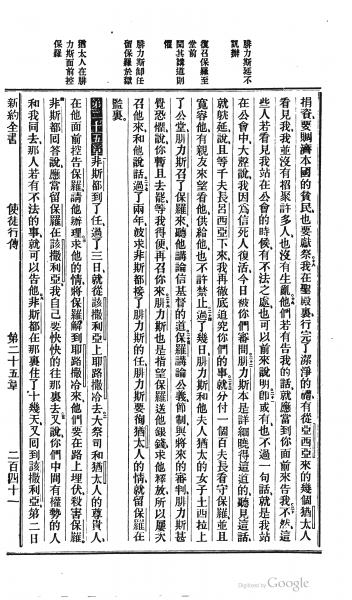 腓力斯延不
訊辦
復召保羅至
堂前
聞其講道則
懼
腓力斯卸任
留保羅於獄
猶太人在腓
力斯面前控
保羅
捐資要賙濟本國的貧民也要獻祭我在聖殿裏行完了潔淨的禮有從亞西亞來的幾個猶太人
看見我我並沒有招聚許多人也沒有生亂他們若有告我的話就應當到你面前來告我不然這
些人若看見我站在公會的時候有不法之處也可以前來說明卽或有也不過一句話就是我站
在公會中大聲說我因爲信死人復活今日被你們審問腓力斯本是詳細曉得這道的聽見這話
就躭延說且等千夫長呂西亞下來我再徹底追究你們的事就分付一個百夫長看守保羅並且
寬容他有親友來望看他供給他也不許禁止過了幾日腓力斯和他夫人猶太的女子土西拉上
了公堂腓力斯召了保羅來聽他講論信基督的道保羅講論公義節制與將來的審判腓力斯甚
覺恐懼說你暫且去罷等我得便再召你來腓力斯也是指望保羅送他銀錢求他釋放所以屢次
召他來和他說話過了兩年彼求非斯都接了腓力斯的任腓力斯要徇猶太人的情就留保羅在
監裏
第二十五章 非斯都到了任過了三日就從該撒利亞上耶路撒冷去大祭司和猶太人的尊貴人
在他面前控告保羅請他辦理求他的情將保羅解到耶路撒冷來他們要在路上埋伏殺害保羅
非斯都回答說應當留保羅在該撒利亞我自己要快快的往那裏去又說你們中間有權勢的人
和我同去那人若有不法的事就可以告他非斯都在那裏住了十幾天又回到該撒利亞第二日
新約全書 使徒行傳 第二十五章 二百四十一
Digitized by Google